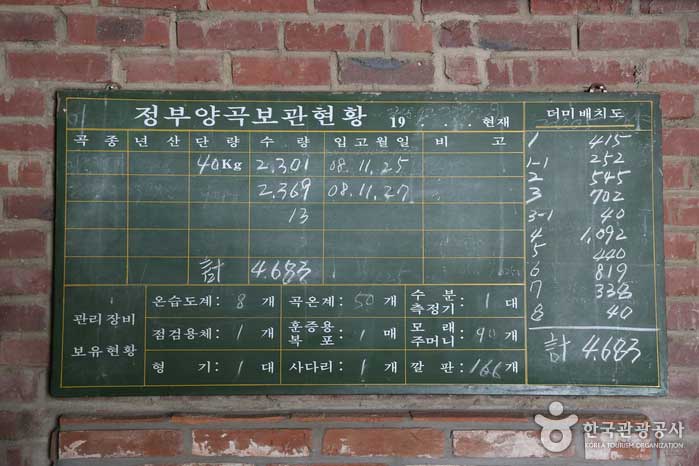 정부양곡보관현황 19 . . . 현재
곡종 년산 단량 수량 입고월일 비고
40Kg 2.301 08.11.25
2.369 08.11.27
13
計 4.683
관리장비 보유현황
온습도계: 8 개 곡온계: 50 개 수분측정기: 1 대
점검용체: 1 개 훈증용복포: 1 매 모래주머니: 90 개
형기: 1 대 사다리: 1 개 깔판: 166 개
더미배치도
1 415
1-1 252
2 545
3 702
3-1 40
4 1,092
5 440
6 819
7 338
8 40
計 4.683
한국관광공사
KOREA TOURISM ORGANIZATION